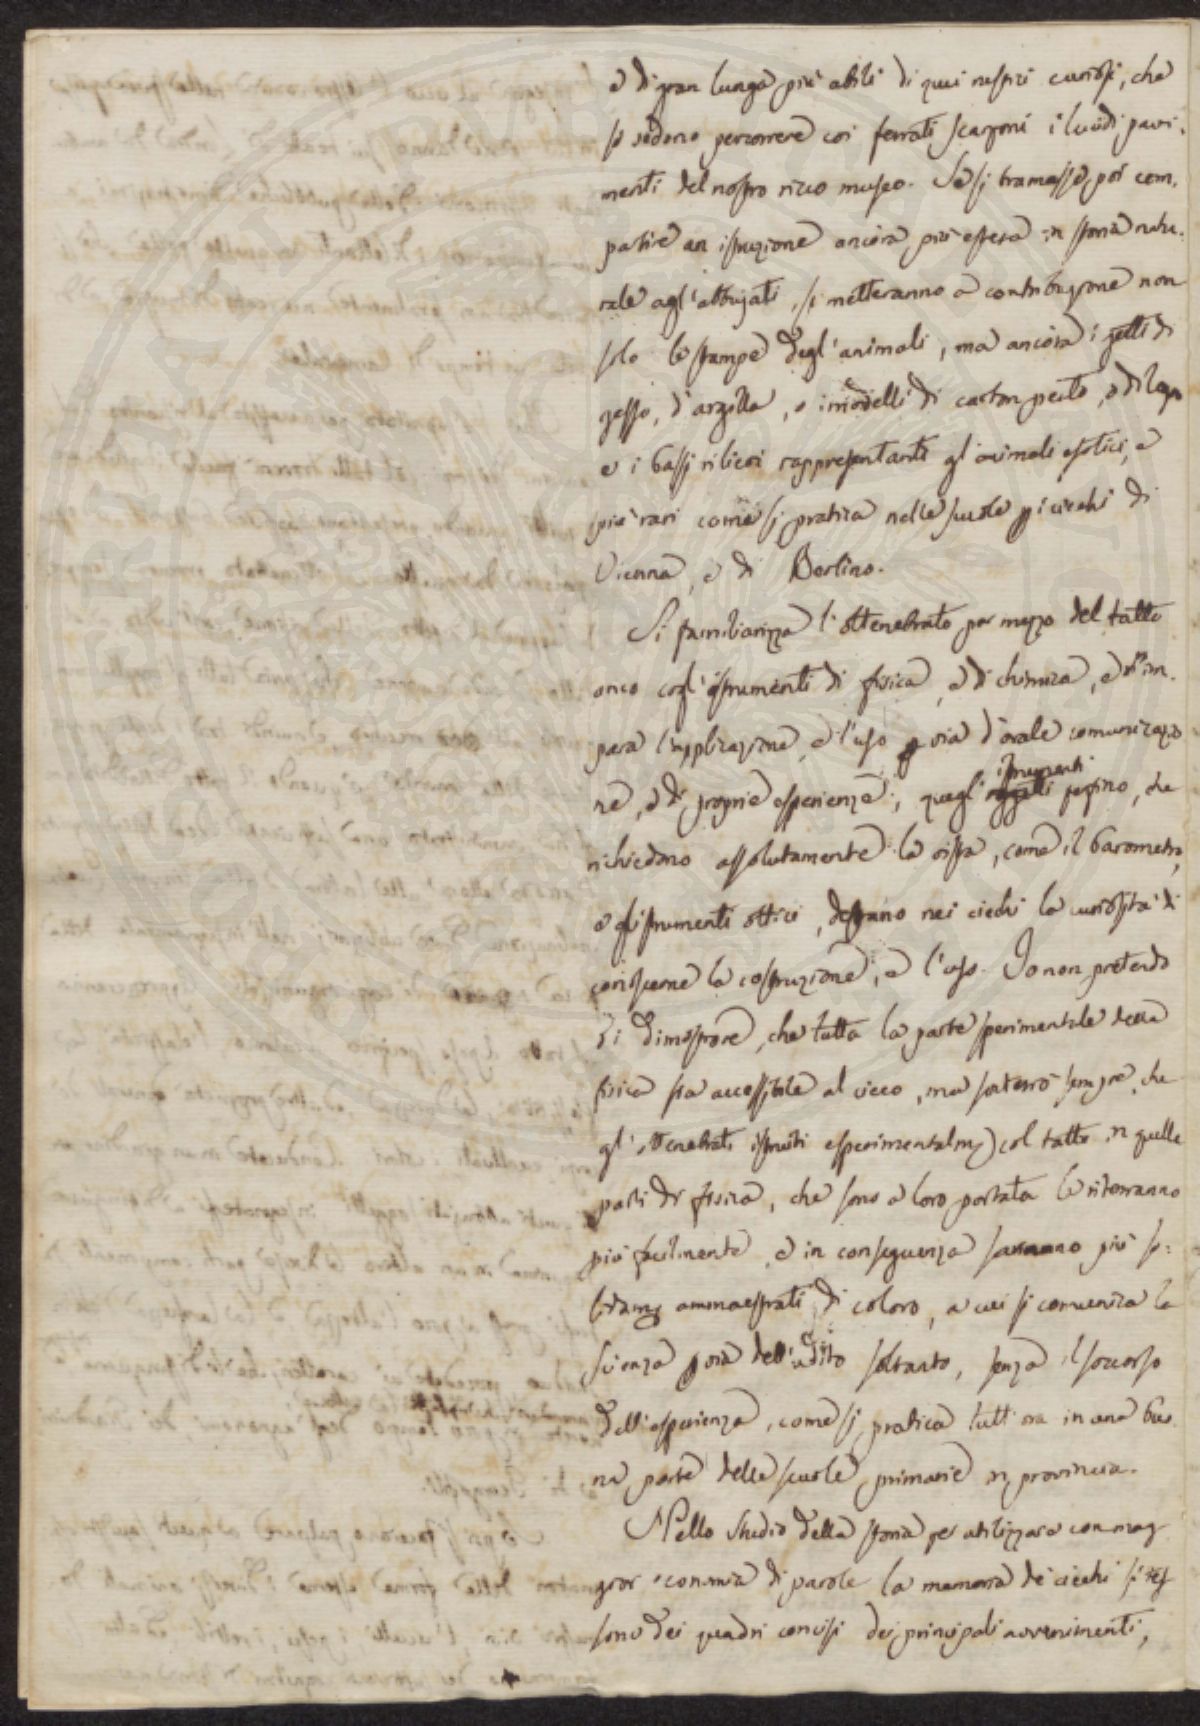 e di gran lunga più abili di quei rustici curiosi, che
si vedono percorrere coi ferrati scarponi i lucidi pavi-
menti del nostro ricco museo. Se si bramasse poi com-
partire un istruzione ancora più estesa in storia natu-
rale agl'abbujati, si metteranno a contribuzione non
solo le stampe degl'animali, ma ancora i getti di
gesso, d'argilla, o i modelli di carton pesto, o di legno
e i bassi rilievi rappresentanti gl'animali esotici, e
più rari come si pratica nelle scuole pei ciechi di
Vienna, e di Berlino.
Si familiarizza l'ottenebrato per mezzo del tatto
anco cogl'istrumenti di fisica, e di chimica, e ne im-
para l'applicazione, e l'uso p via d'orale comunicazio
ne, e di proprie esperienze; quegl'istrumenti perfino, che
richiedono assolutamente la vista, come il barometro,
e gl'istrumenti ottici, destano nei ciechi la curiosità di
conoscerne la costruzione, e l'uso. Io non pretendo
di dimostrare, che tutta la parte sperimentale della
fisica sia accessibile al cieco, ma sosterrò sempre, che
gl'ottenebrati istruiti esperimentalm col tatto in quelle
parti di fisica, che sono a loro portata le riterranno
più facilmente, e in conseguenza saranno più so-
lidam ammaestrati di coloro, a cui si comunica la
scienza p via dell'udito soltanto, senza il soccorso
dell'esperienza, come si pratica tutt'ora in una buo
na parte delle scuole primarie in provincia.
Nello studio della storia per utilizzare con mag
gior economia di parole la memoria de' ciechi si tes
sono dei quadri concisi dei principali avvenimenti,